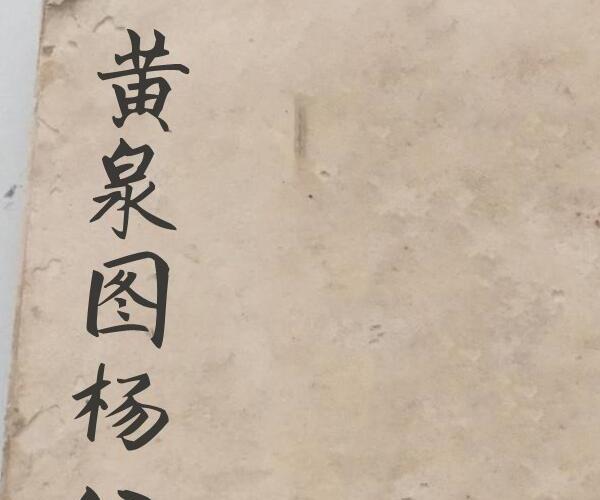 黄泉图杨